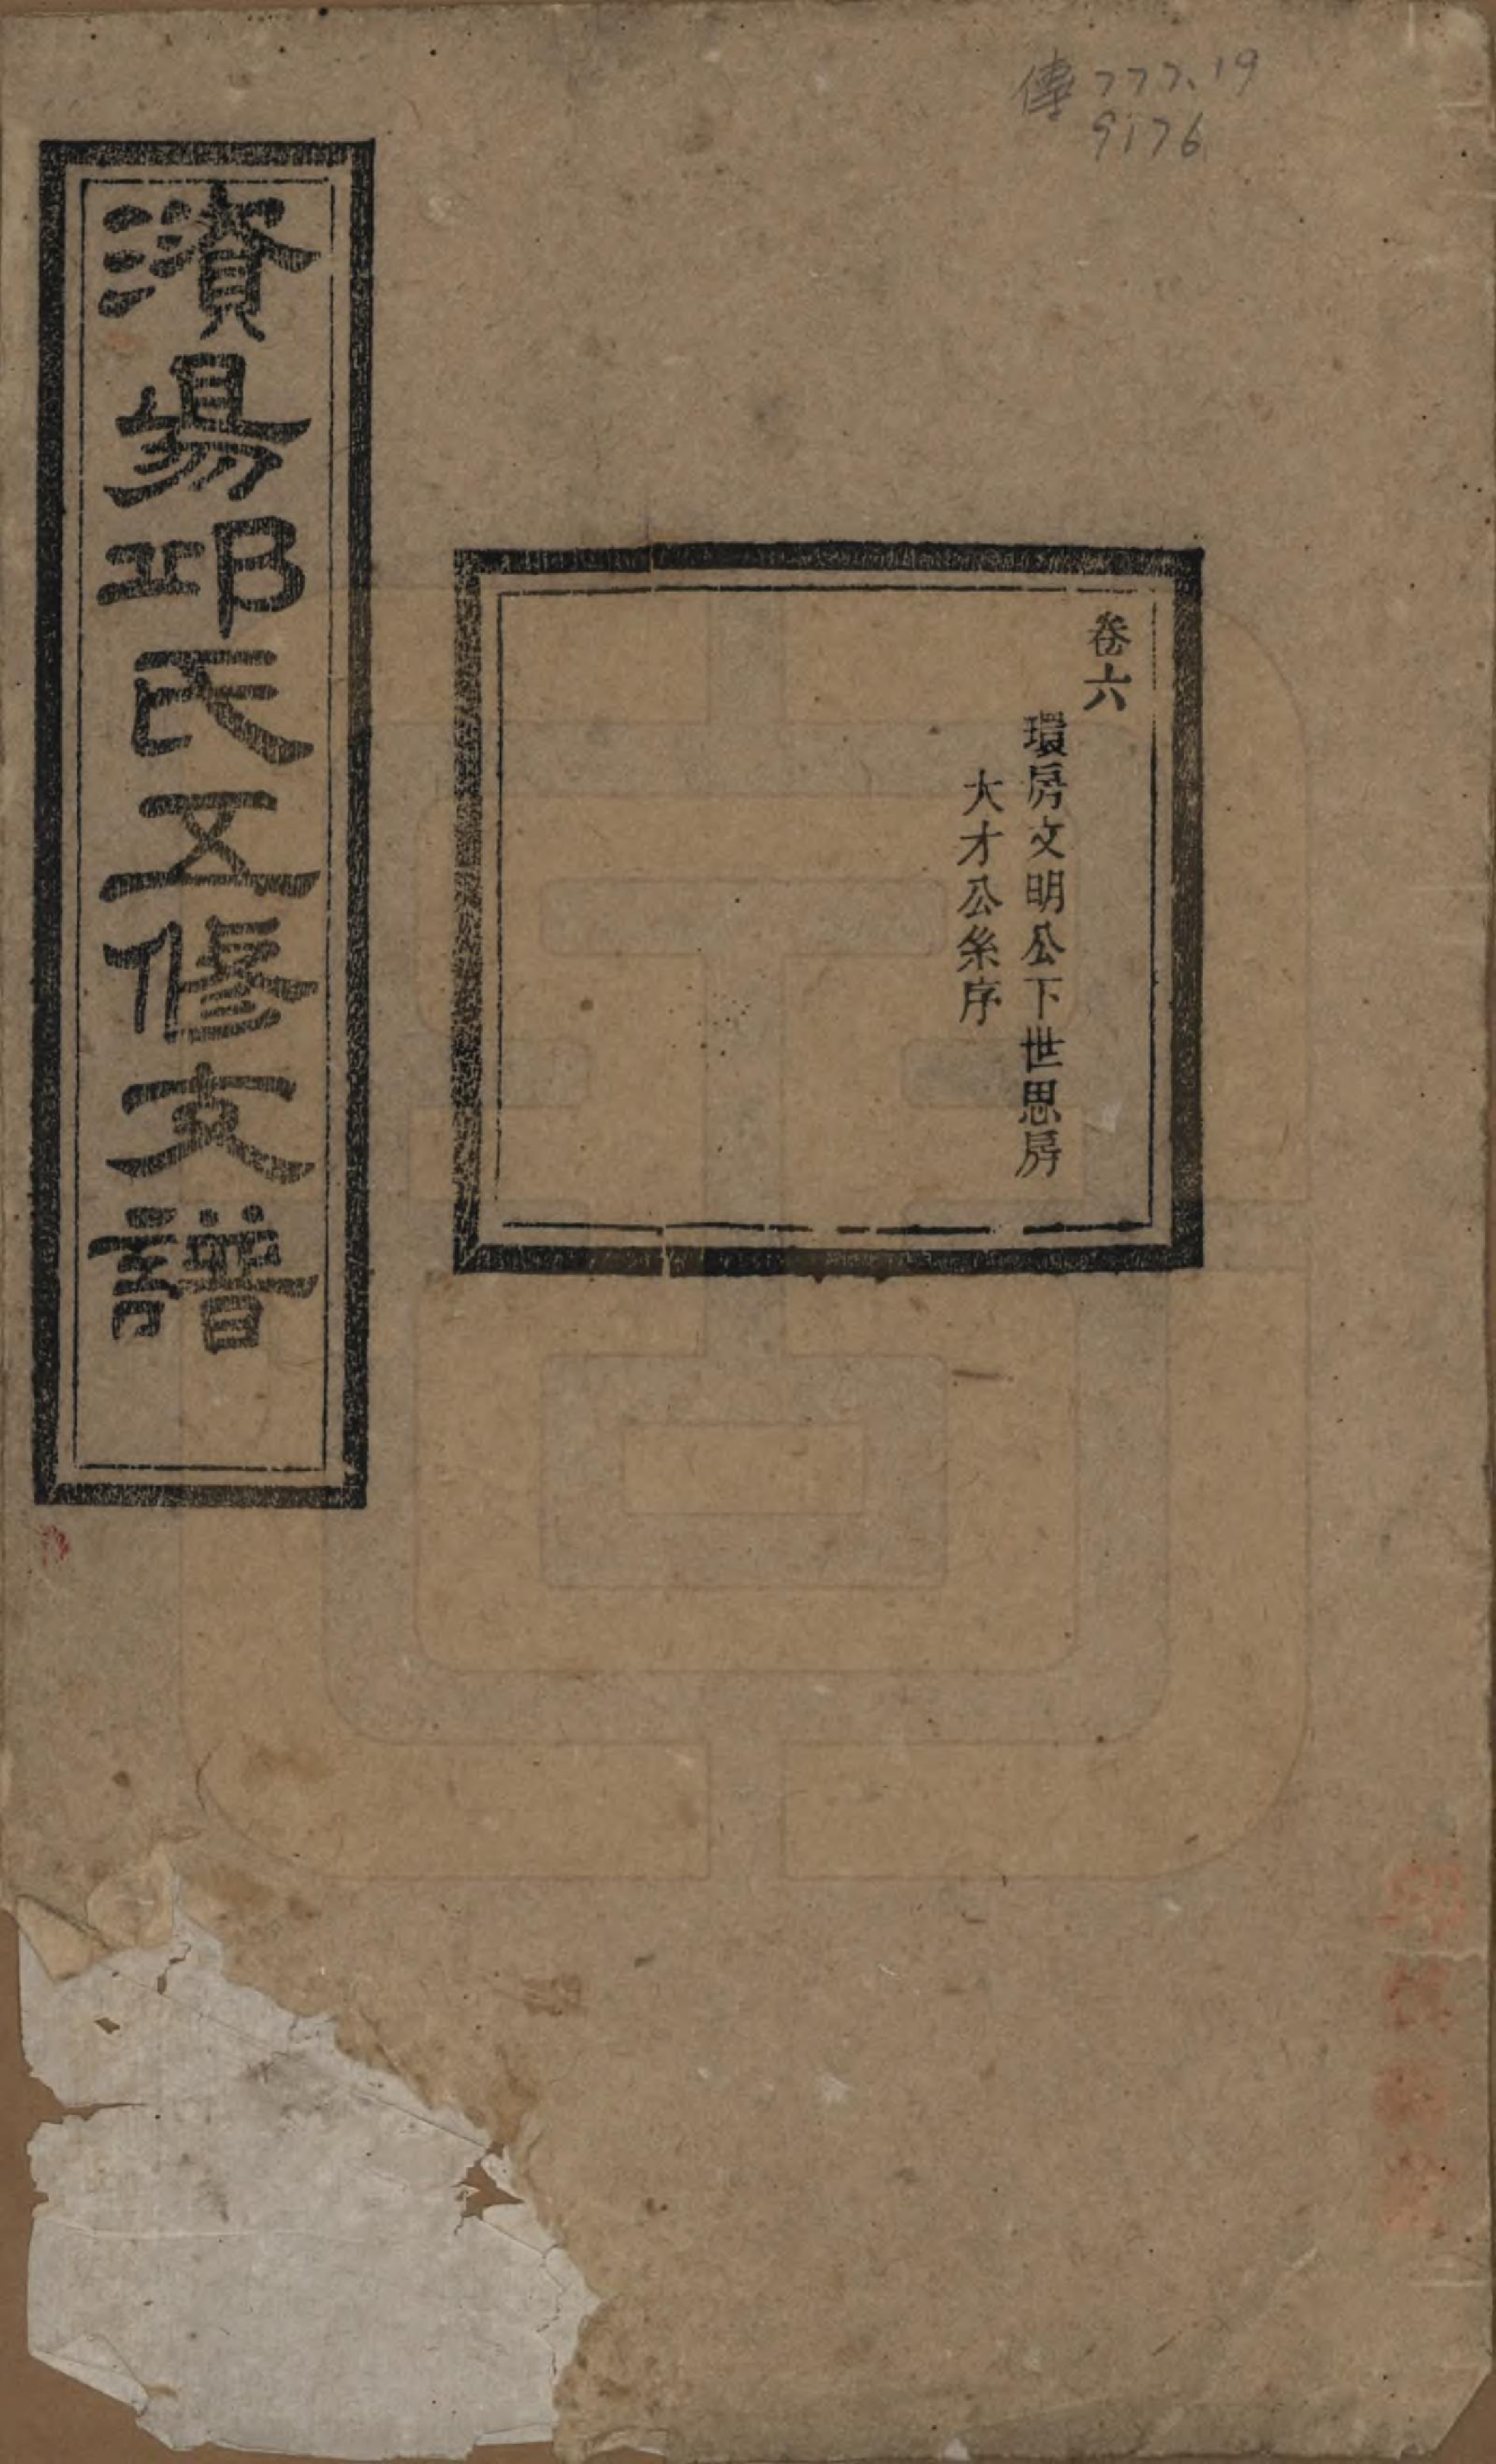 傳 777.19
9176
卷六
環房文明公下世思房
大才公系序
澬昜邱氏五修支譜